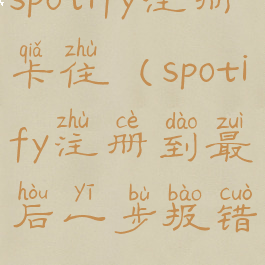 spotify注册
qiǎ zhù
卡住（spoti
zhù cè dào zuì
fy注册到最
hòu yī bù bào cuò
后一步报错